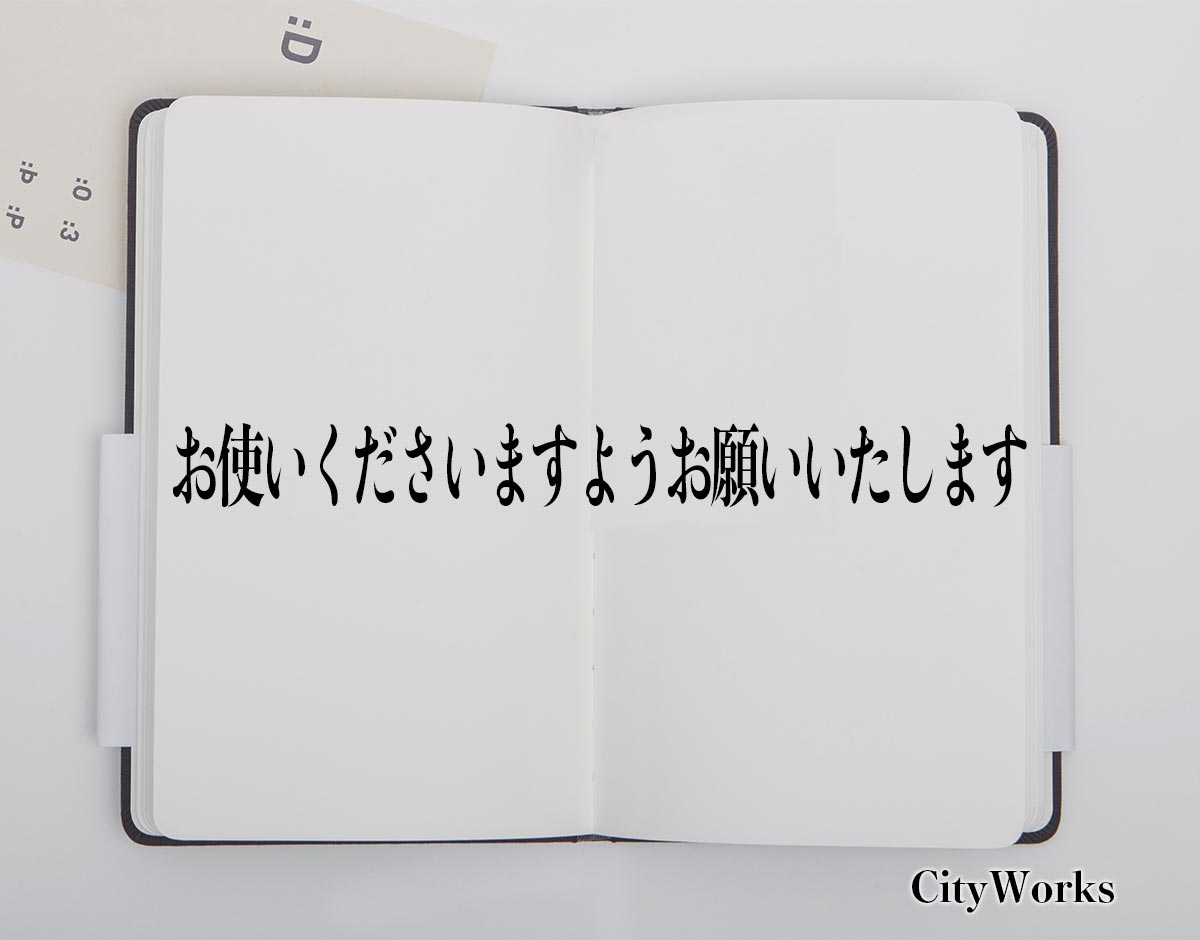 :D
:P :O
:P :3
お使いくださいますようお願いいたします
CityWorks